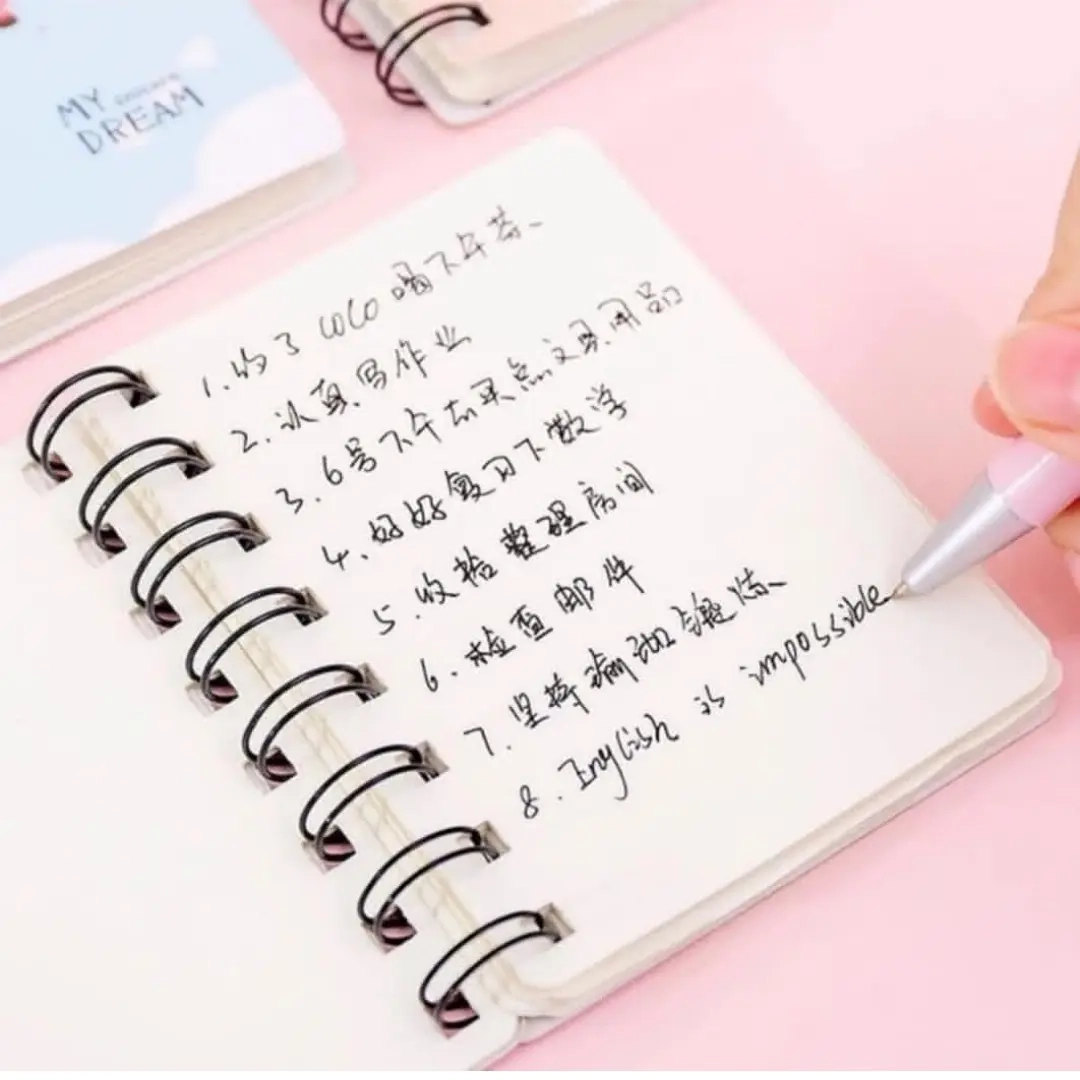 MY
DREAM
1.约了COCO喝下午茶、
2.认真写作业
3.6号下午去买点文具用品
4.好好复习下数学
5.收拾整理房间
6.检查邮件
7.坚持瑜珈锻炼、
8.English is impossible